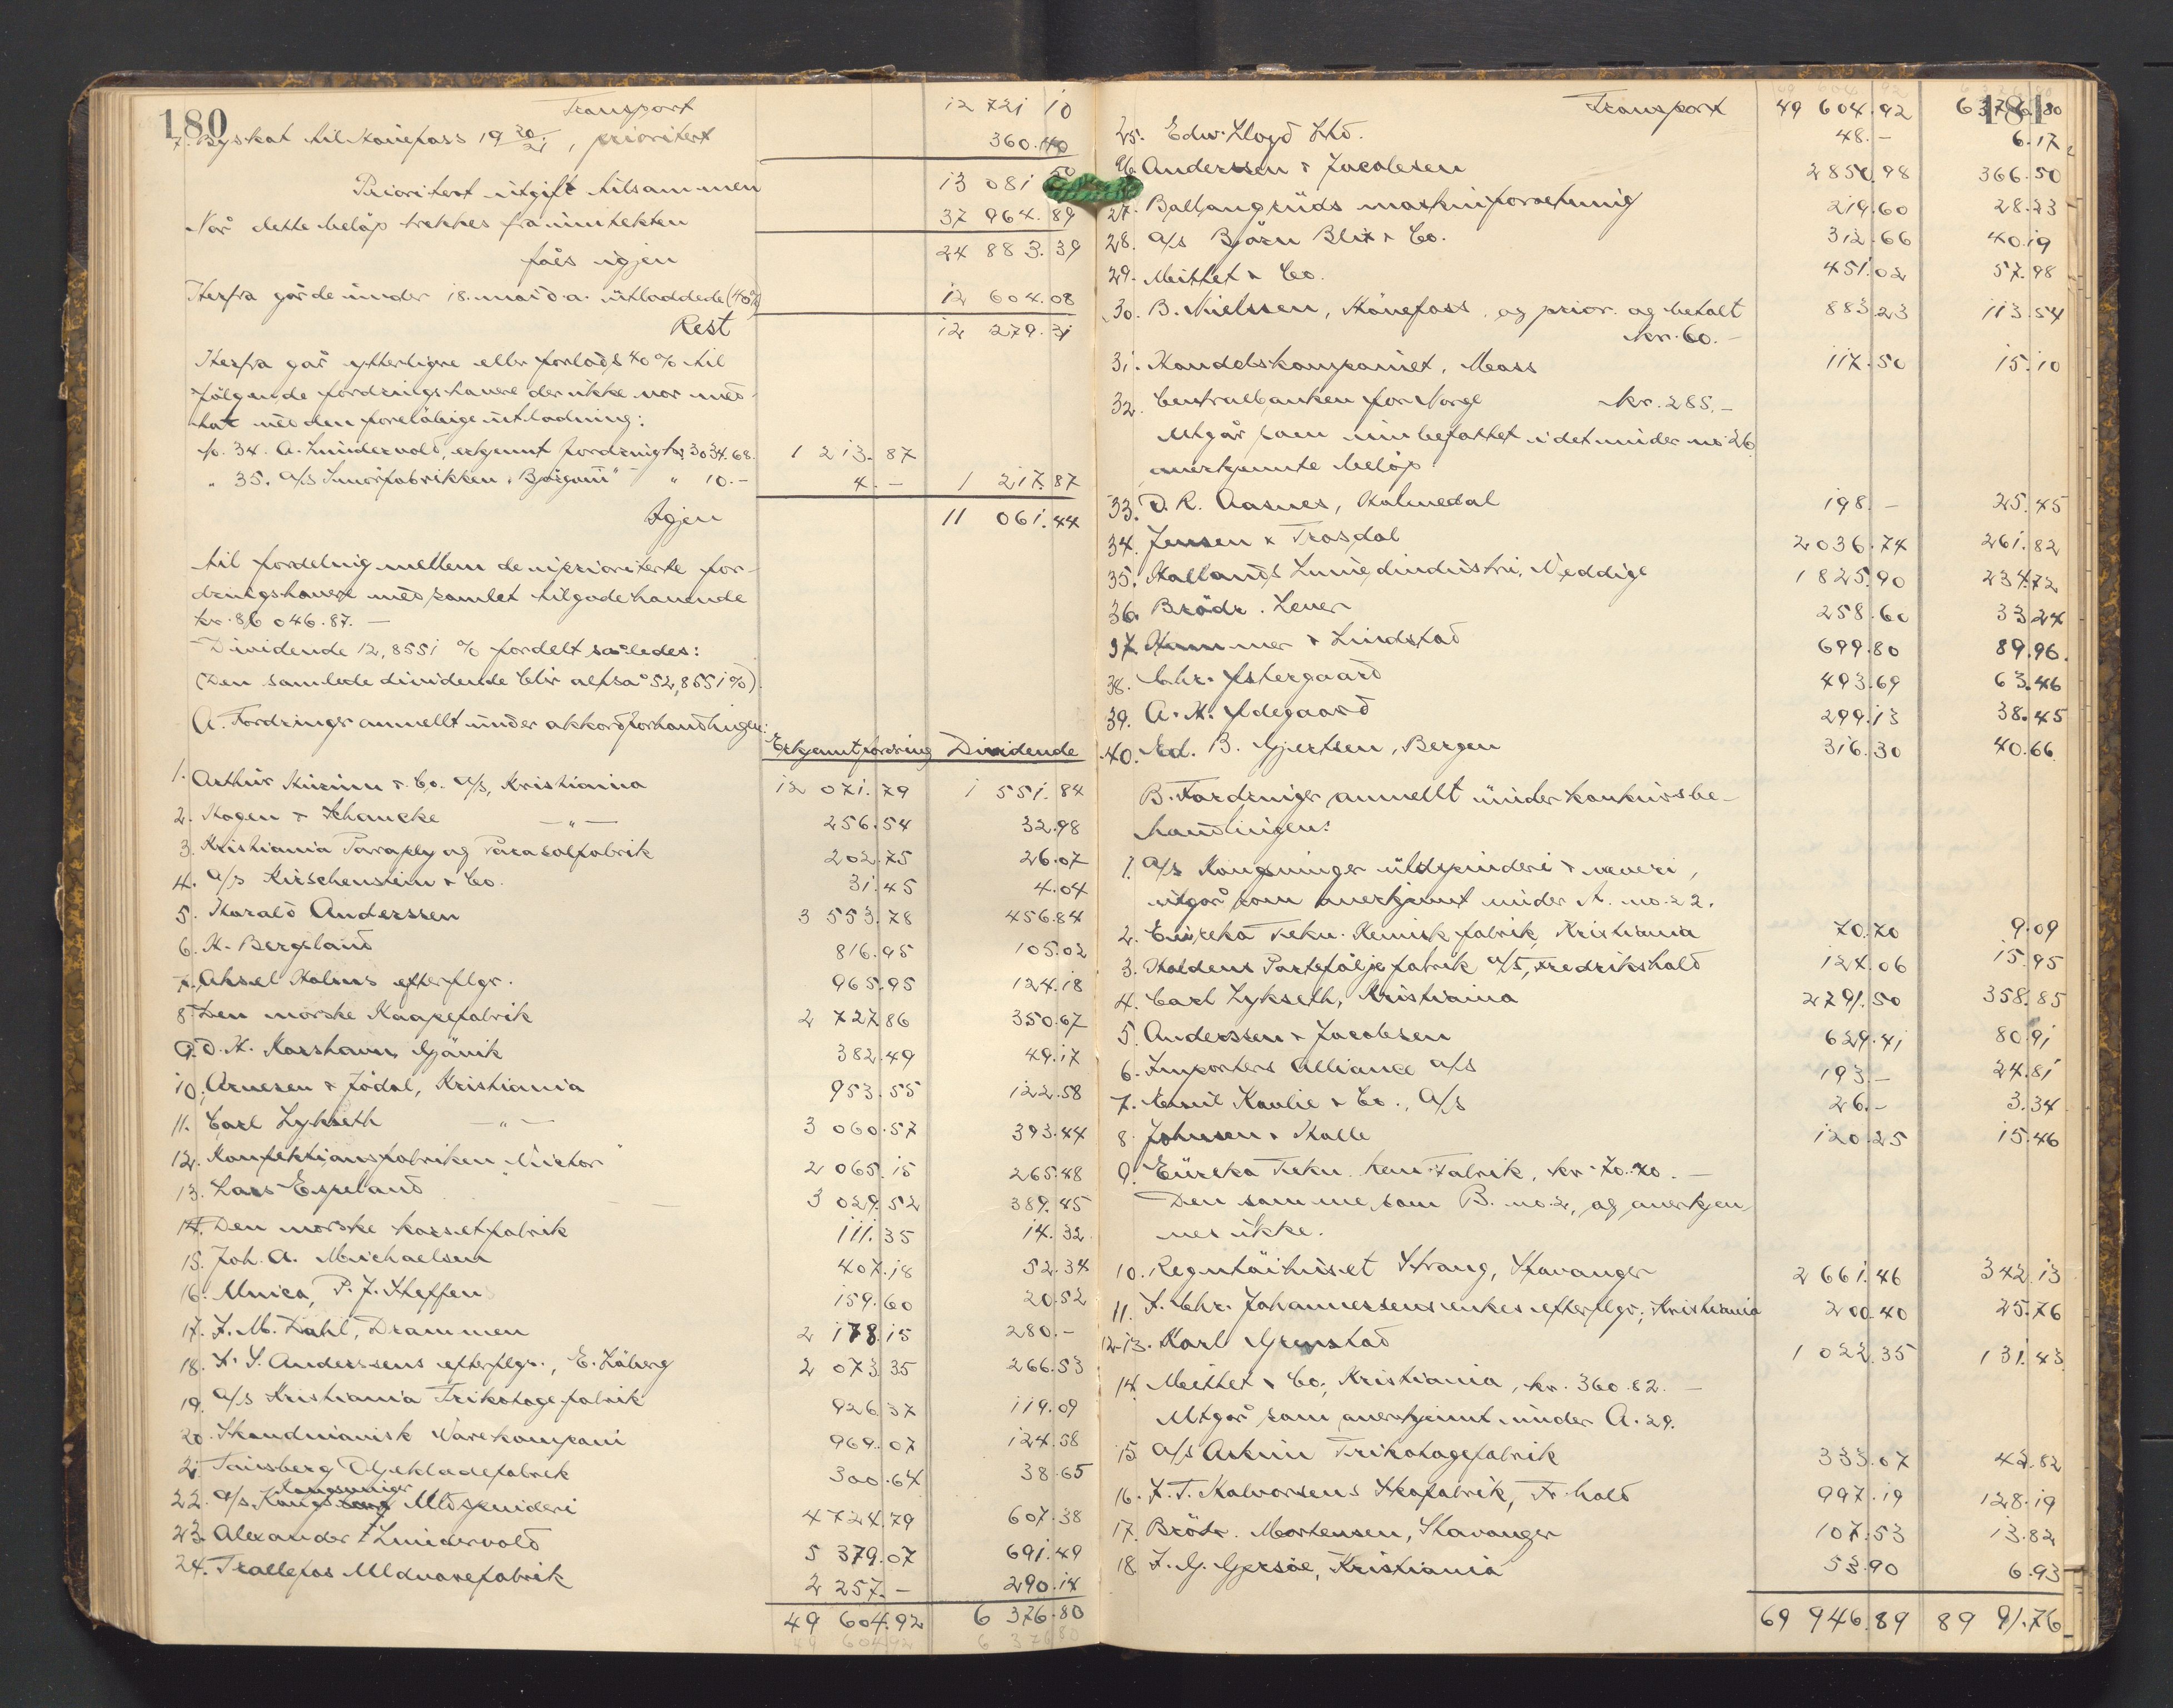 180
Transport 12 721 10
7. Byskat til Hønefoss 19 20/21, prioritert 360.40
Prioritert utgift tilsammen 13 081 50
Når dette beløp trekkes fra inntekten 37 964.89
fåes igjen 24 883.39
Herfra går de under 18. mai d.a. utloddede (40%) 12 604.08
Rest 12 279.31
Herfra går ytterligere eller forlods 40% til
følgende fordringshavere der ikke var med-
tat ved den foreløbige utlodning:
No. 34. A. Lundervold, erkjennt fordring kr. 3034.68. 1 213.87
" 35. A/S Smørfabrikken " Borgund " " 10.- 4.- 1 217.87
Igjen 11 061.44
til fordeling mellem de uprioriterte for-
dringshavere med samlet tilgodehavende
kr. 86 046.87. —
Dividende 12,8551 % fordelt således:
(Den samlede dividende blir altså 52,8551%).
A. Fordringer anmeldt under akkordforhandlingen:
Erkjennt fordring Dividende
1. Arthur & Co. A/S, Kristiania 12 071.79 1 551.84
2. Hagen & Schancke —"— 256.54 32.98
3. Kristiania Paraply og Parasolfabrik 202.75 26.07
4. A/S Hirschenstein & Co. 31.45 4.04
5. Harald Anderssen 3 553.78 456.84
6. H. Bergeland 816.95 105.02
7. Aksel Holms efterflgr. 965.95 124.18
8. Den norske Kaapefabrik 2 727.86 350.67
9. D. H. Gjøvik 382.49 49.17
10. Arnesen & Jødal, Kristiania 953.55 122.58
11. Carl Lykseth —"— 3 060.57 393.44
12. Konfektionsfabriken Victor " 2 065.15 265.48
13. Lars Espeland 3 029.52 389.45
14. Den norske korsetfabrik 111.35 14.32
15. Joh. A. Michaelsen 407.18 52.34
16. Unica, P. J. Steffen 159.60 20.52
17. J. M. Dahl, Drammen 2 178.15 280.-
18. F. S. Anderssens efterflgr., E. Löberg 2 073.35 266.53
19. A/S Kristiania Trikotagefabrik 926.37 119.09
20. Skandinavisk Varekompani 969.07 124.58
21. Tønsberg Oljeklædefabrik 300.64 38.65
22. A/S Kongsvinger Uldspinderi 4 724.79 607.38
23. Alexander Lundervold 5 379.07 691.49
24. Trollefos Uldvarefabrik 2 257.- 290.14
49 604.92 6 376.80
49 604.92 6 376.80
181
Transport 49 604.92 6376.80
25. Edw. Lloyd Ltd. 48.- 6.17
26. Anderssen & Jacobsen 2850.98 366.50
27. Ballangruds maskinforretning 219.60 28.23
28. A/S Björn Blix & Co. 312.66 40.19
29. Mittet & Co. 451.02 57.98
30. B. Nielssen, Hönefoss, og prior. og betalt 883.23 113.54
kr. 60.-
31. Handelskompaniet, Moss 117.50 15.10
32. Centralbanken for Norge kr. 285.-
Utgår som innbefattet i det under no. 26
anerkjennte beløp.
33. D. R. Aasnes, Holmedal 198.- 25.45
34. Jensen & Trosdal 2036.74 261.82
35. Hallands Linneindustri, Veddige 1 825.90 234.72
36. Brödr. Lever 258.60 33.24
37. Hammer & Lindstad 699.80 89.96.
38. Chr. Østergaard 493.69 63.46
39. A. H. Ødegaard 299.13 38.45
40. Ed. B. Gjertsen, Bergen 316.30 40.66
B. Fordringer anmeldt under konkursbe-
handlingen:
1. A/S Kongsvinger uldspinderi & veveri,
utgår som anerkjennt under A. no. 22.
2. Eureka Tekn. Kemisk fabrik, Kristiania 70.70 9.09
3. Haldens Porteføljefabrik A/S, Fredrikshald 124.06 15.95
4. Carl Lykseth, Kristiania 2791.50 358.85
5. Anderssen & Jacobsen 629.41 80.91
6. Importers Alliance A/S 193.- 24.81
7. Emil Kavlie & Co., A/S 26.- 3.34
8. Johnsen & Halle 120.25 15.46
9. Eureka Tekn. kem. Fabrik, kr. 70.70. —
Den samme som B. no. 2, og anerkjen-
nes ikke.
10. Regntöihuset Strang, Stavanger 2 661.46 342.13
11. F. Chr. Johannessens enkes efterflgr., Kristiania 200.40 25.76
12-13. Karl Grenstad 1 022.35 131.43
14. Mittet & Co., Kristiania, kr. 360.82. —
Utgår som anerkjennt under A. 29.
15. A/S Askim Trikotagefabrik 333.07 42.82
16. F. T. Halvorsens Skofabrik, Fr.hald 997.19 128.19
17. Brödr. Mortensen, Stavanger 107.53 13.82
18. J. G. Gjersöe, Kristiania 53.90 6.93
69 946.89 89 91.76